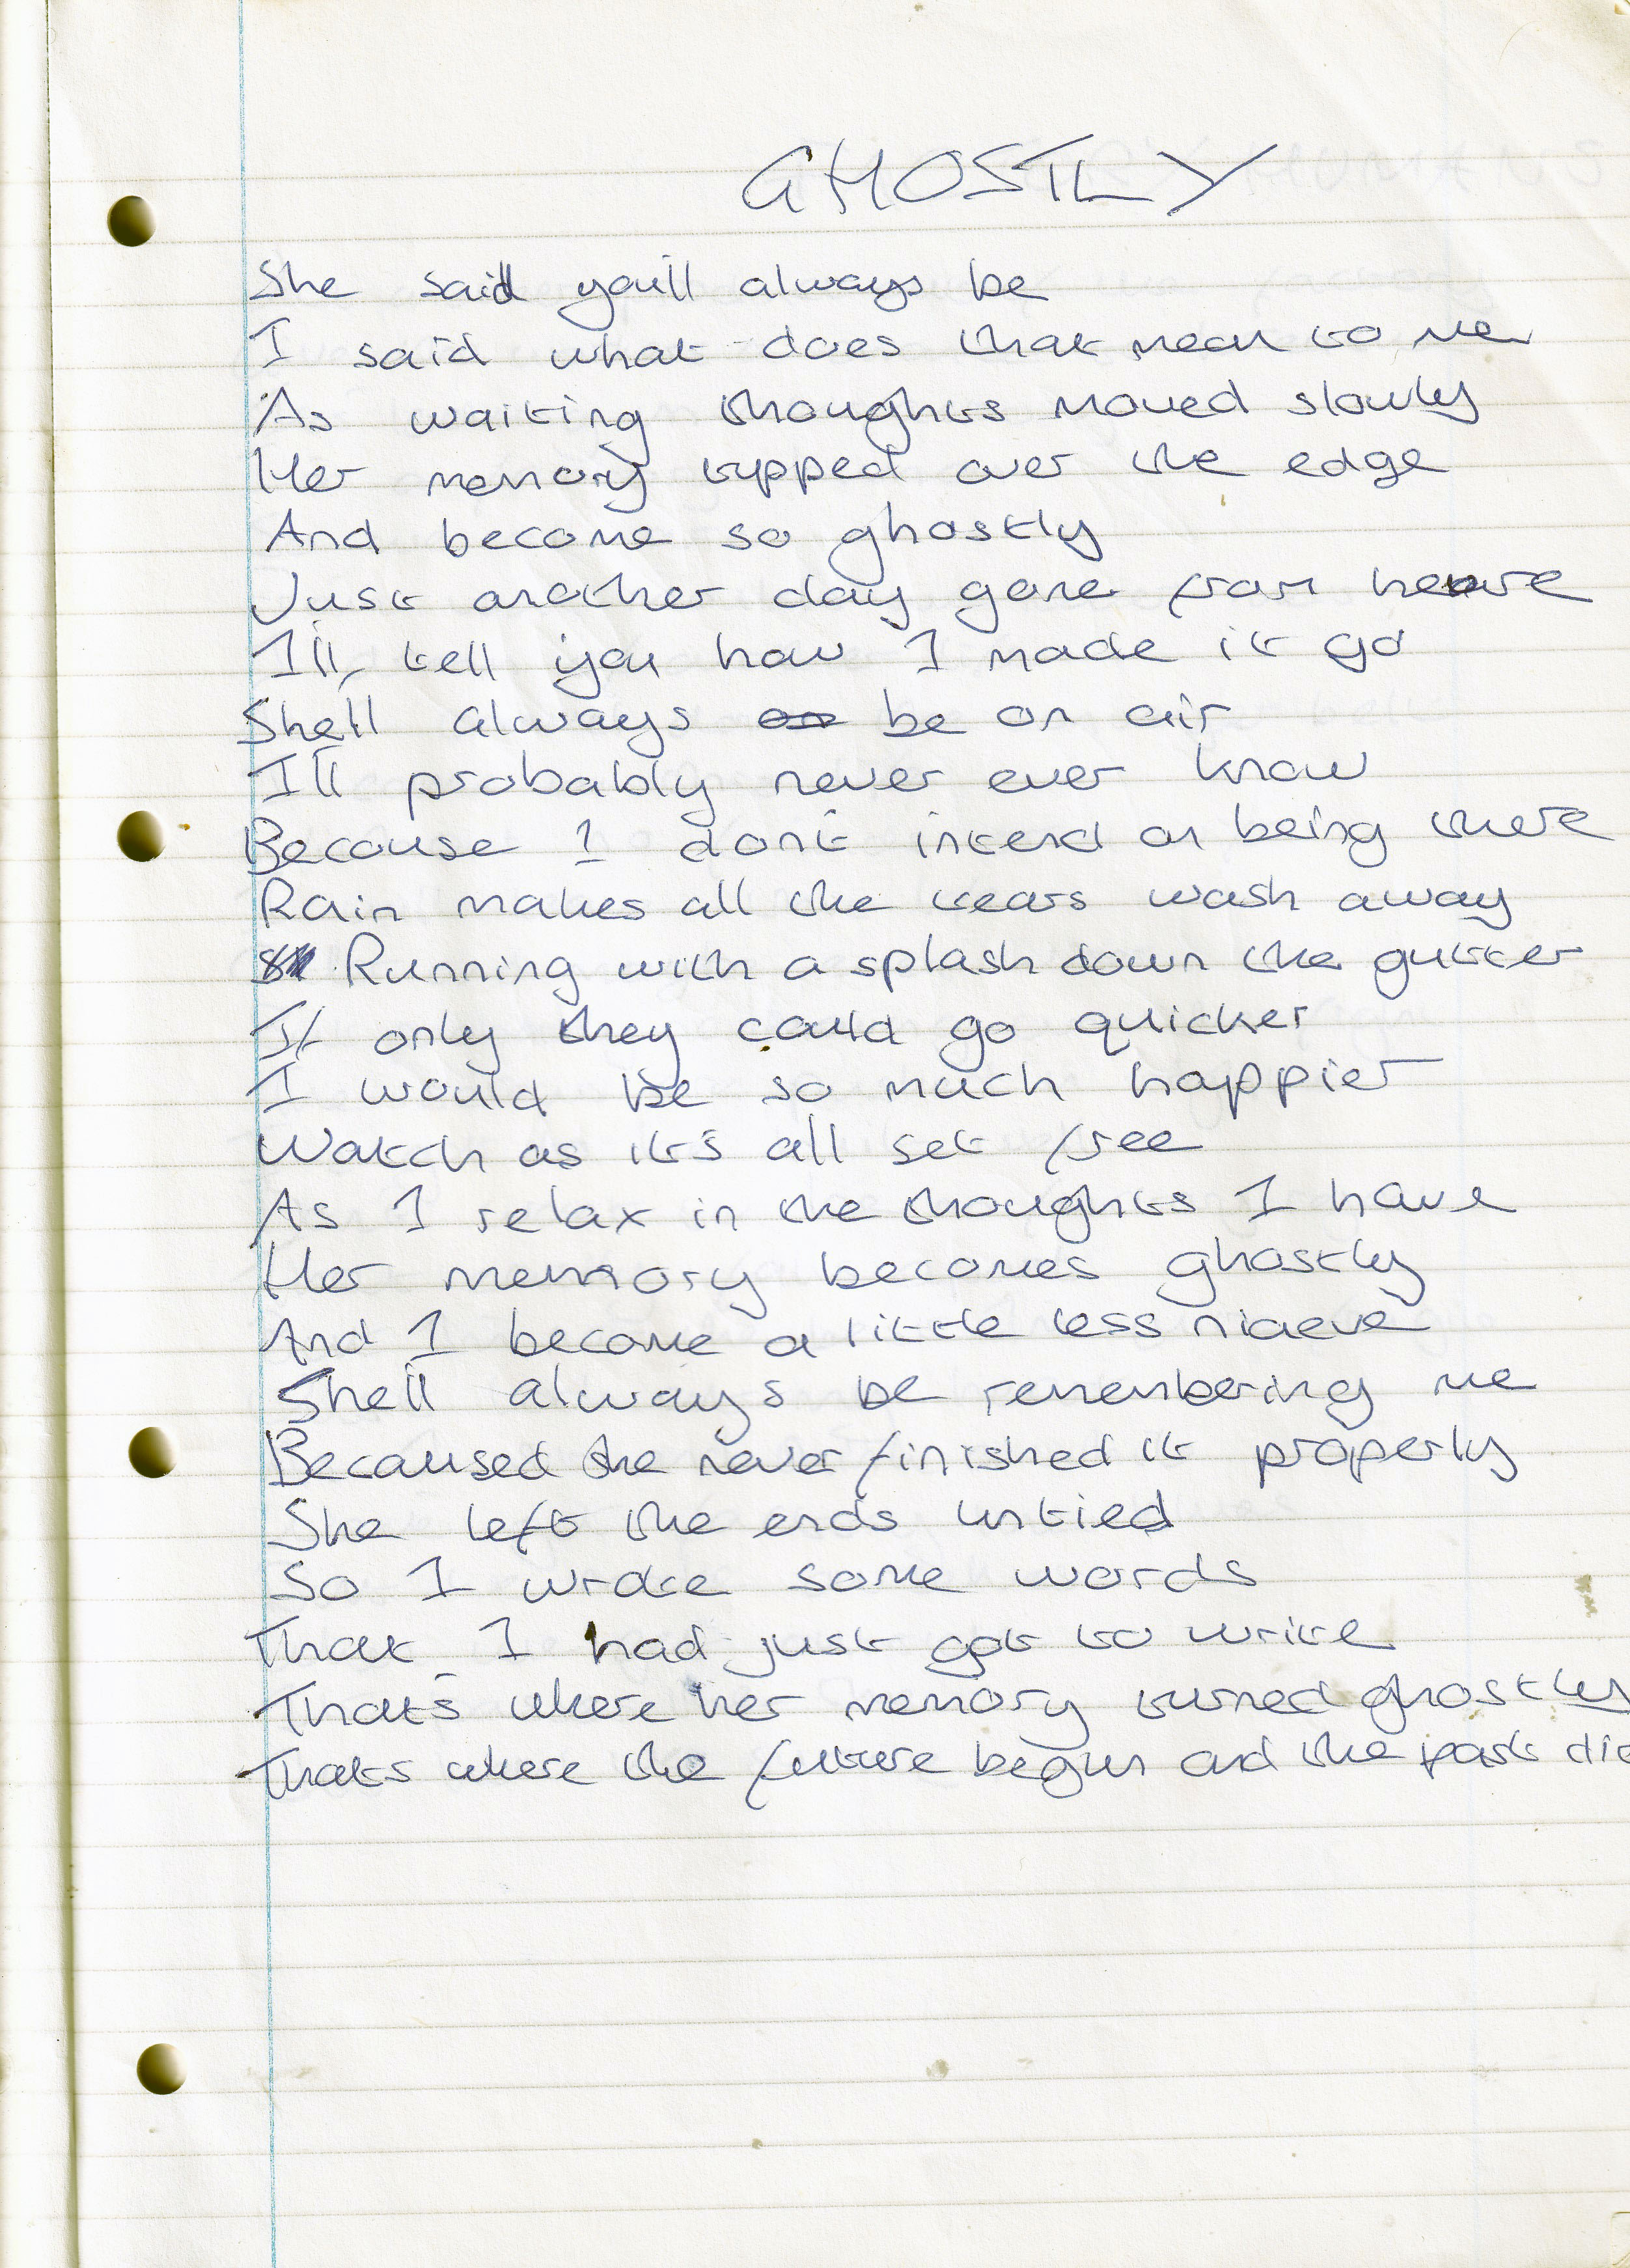 GHOSTLY
She said you'll always be
I said what does that mean to me
As waiting thoughts moved slowly
Her memory typped over the edge
And become so ghostly
Just another day gone from here
I'll tell you how I made it go
She'll always be on air
I'll probably never ever know
Because I don't intend on being there
Rain makes all the tears wash away
Running with a splash down the gutter
If only they could go quicker
I would be so much happier
Watch as it's all set free
As I relax in the thoughts I have
Her memory becomes ghostly
And I become a little less niaeve
She'll always be remembering me
Becaused she never finished it properly
She left the ends untied
So I wrote some words
That I had just got to write
That's where her memory turned ghostly
Thats where the future begun and the past die